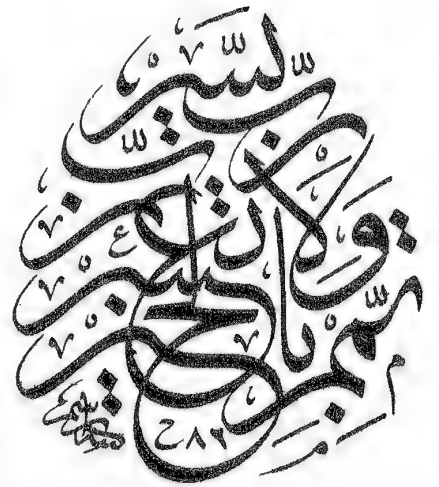 رَبِّ يَسِّرْ
وَلَا تُعَسِّرْ
رَبِّ تَمِّمْ بِالْخَيْرِ
٨٢